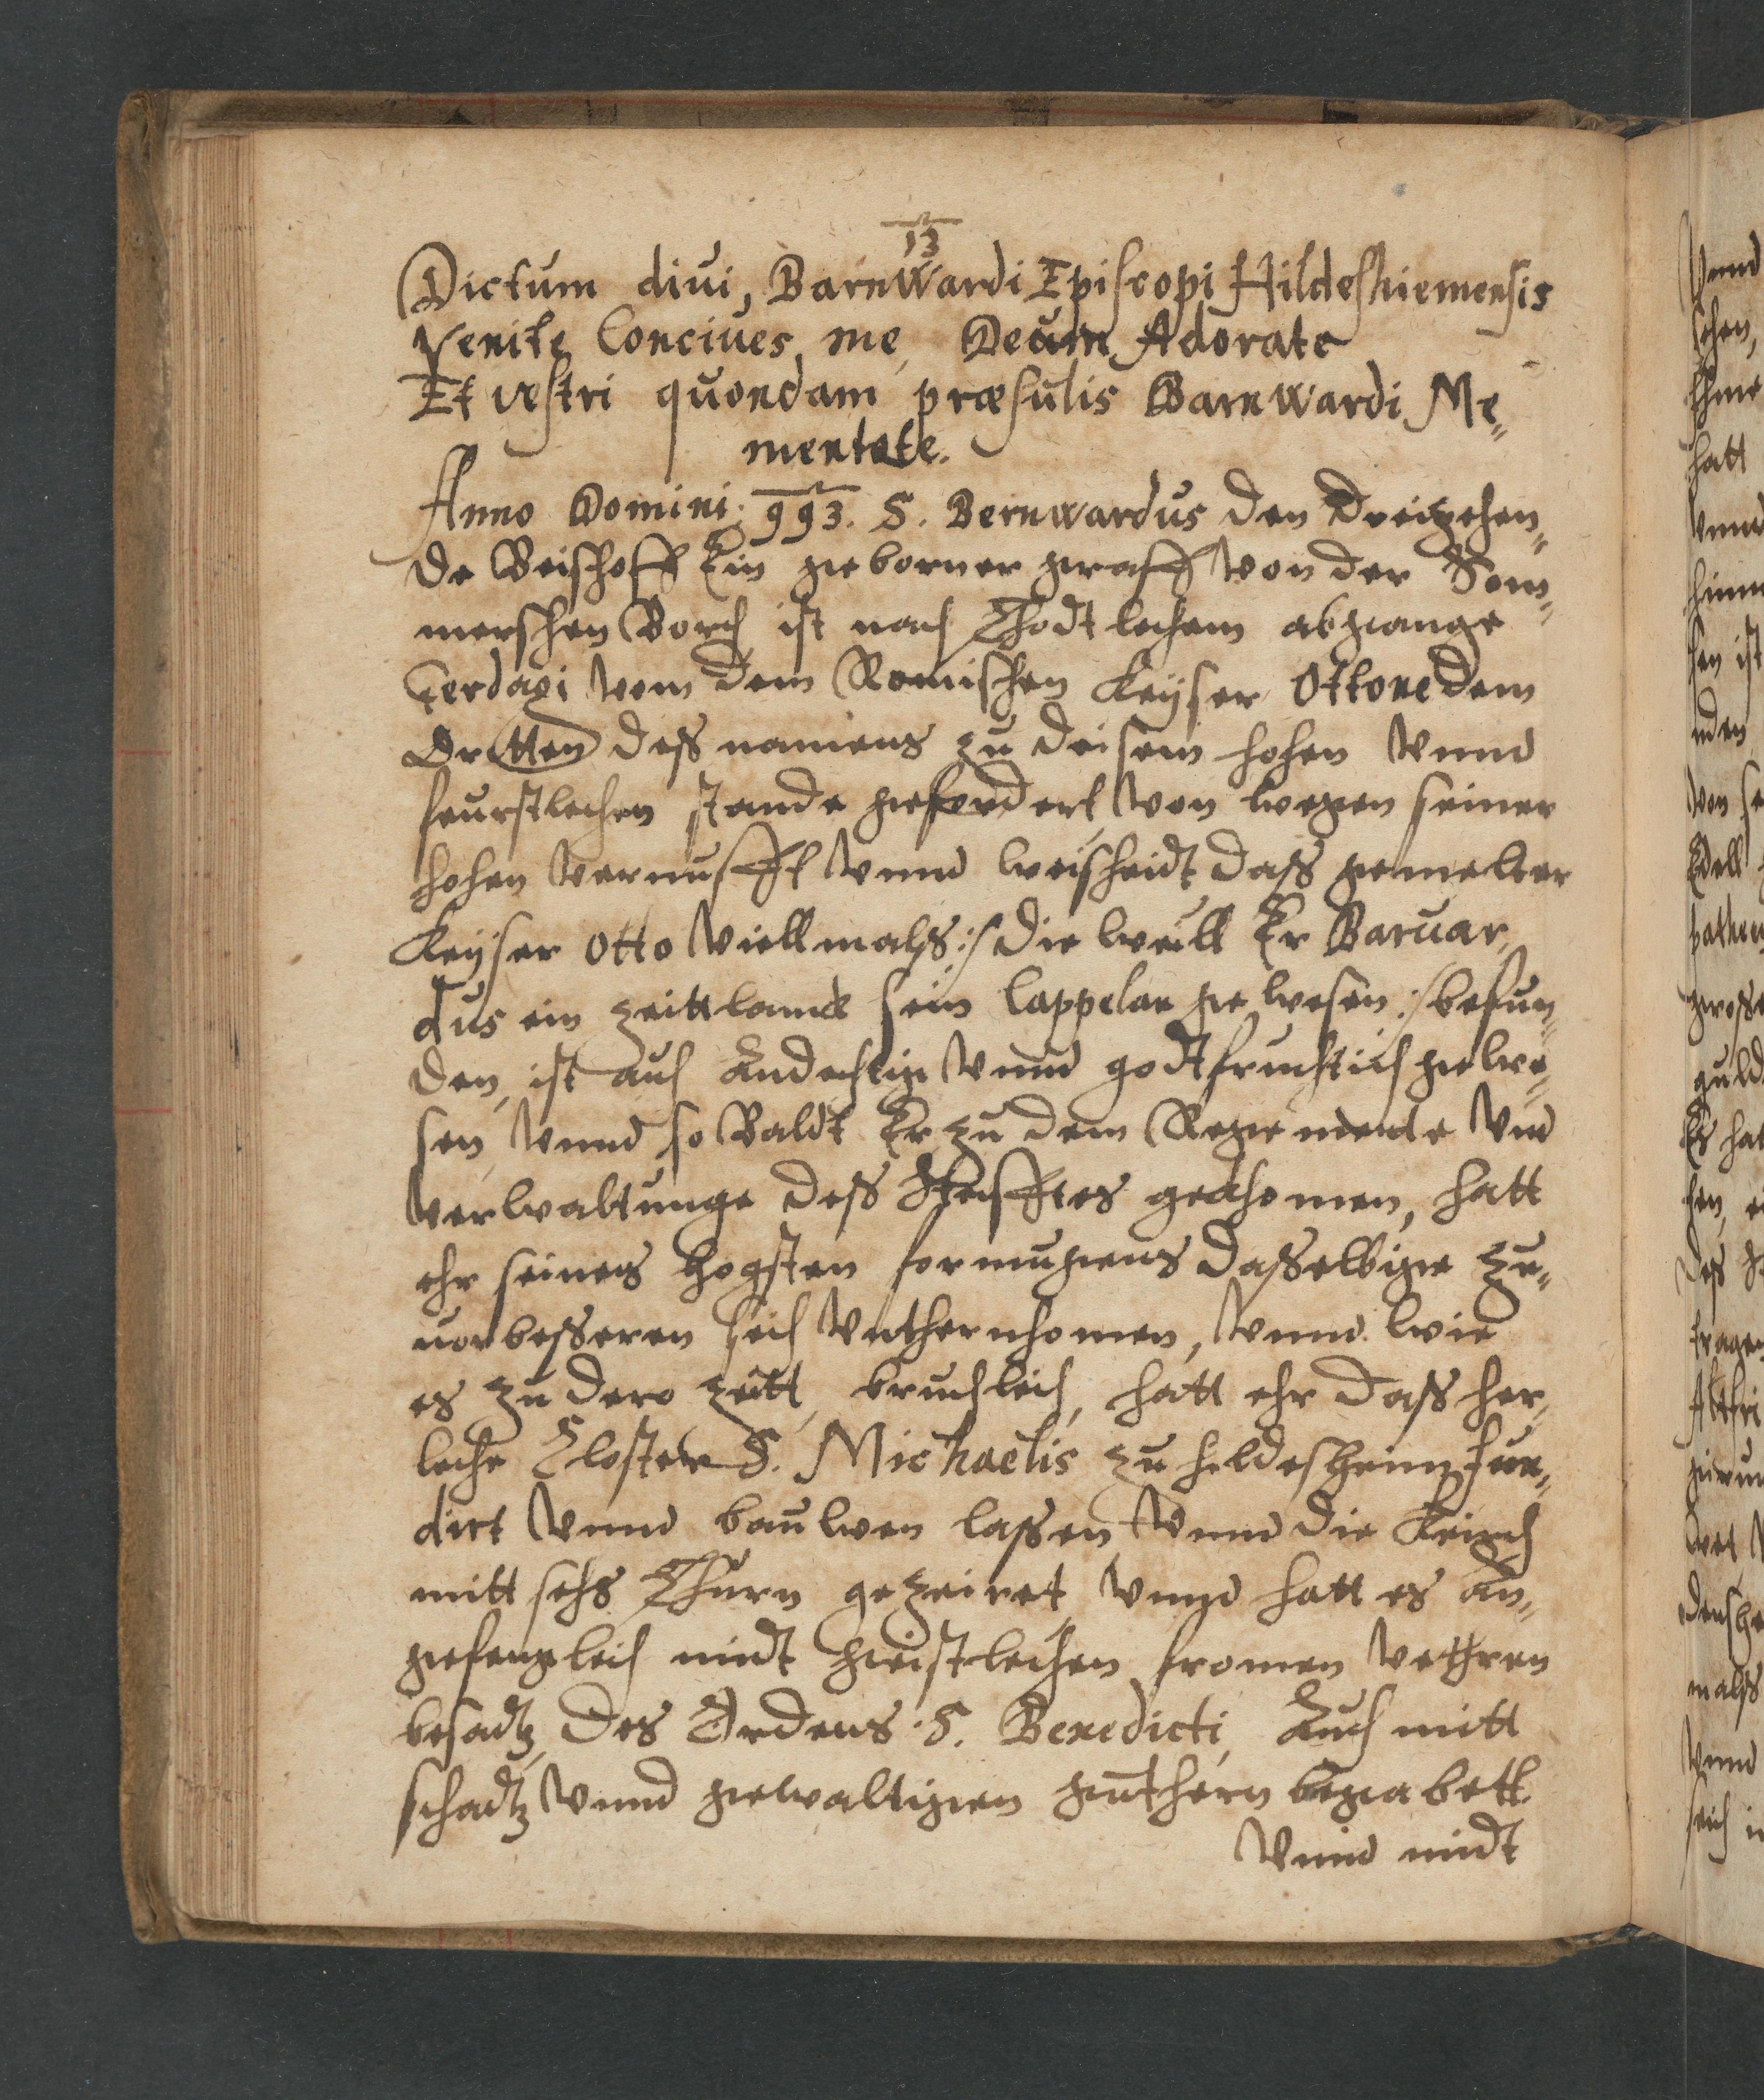 13
Dictum diui, Barnwardi Episcopi Hildeshiemensis
Venite Conciues, me, Deum Adorate
Et vestri quondam præsulis Barnwardi Me„
mentote.
Anno Domini. 993. S. Bernwardus den dreizehen„
de Beischoff Ein geborner graff von der Som„
merschen Borch ist nach Thodtlechem abgange
Gerdagi vom dem Romischen Keyser Ottone dem
Dritten deß namens zu deisem hohen vnnd
feurstlechen stande gefordert von wegen seiner
hohen vernufft vnnd weisheidt, daß gemelter
Keyser Otto viellmahß :/ die weill Er Baruar„
dus ein zeittlanck sein Cappelan gewesen :/ befun„
den, ist auch Andechtig vnnd godtfruchtich gewe„
sen, vnnd so Baldt Er zu dem Regemende vnd
verwaltunge deß Steifftes gekhomen, hatt
ehr seines hogsten formugens daßelbige zu„
uorbesseren seich vnthernhomen, vnnd wie
es zu dero zeitt, bruchleich, hatt ehr daß her„
leche Closter S. Michaelis zu hildesheim fun„
dirt vnnd bauwen laßen vnnd die Keirch
mitt sehs Thurn gezeiret, vnnd hatt es An„
gefengleich midt geistlechen fromen vethren
besadtz, des Ordens S. Benedicti, Auch mitt
schadtz vnnd gewaltigen guthern begabett
vnnd midt